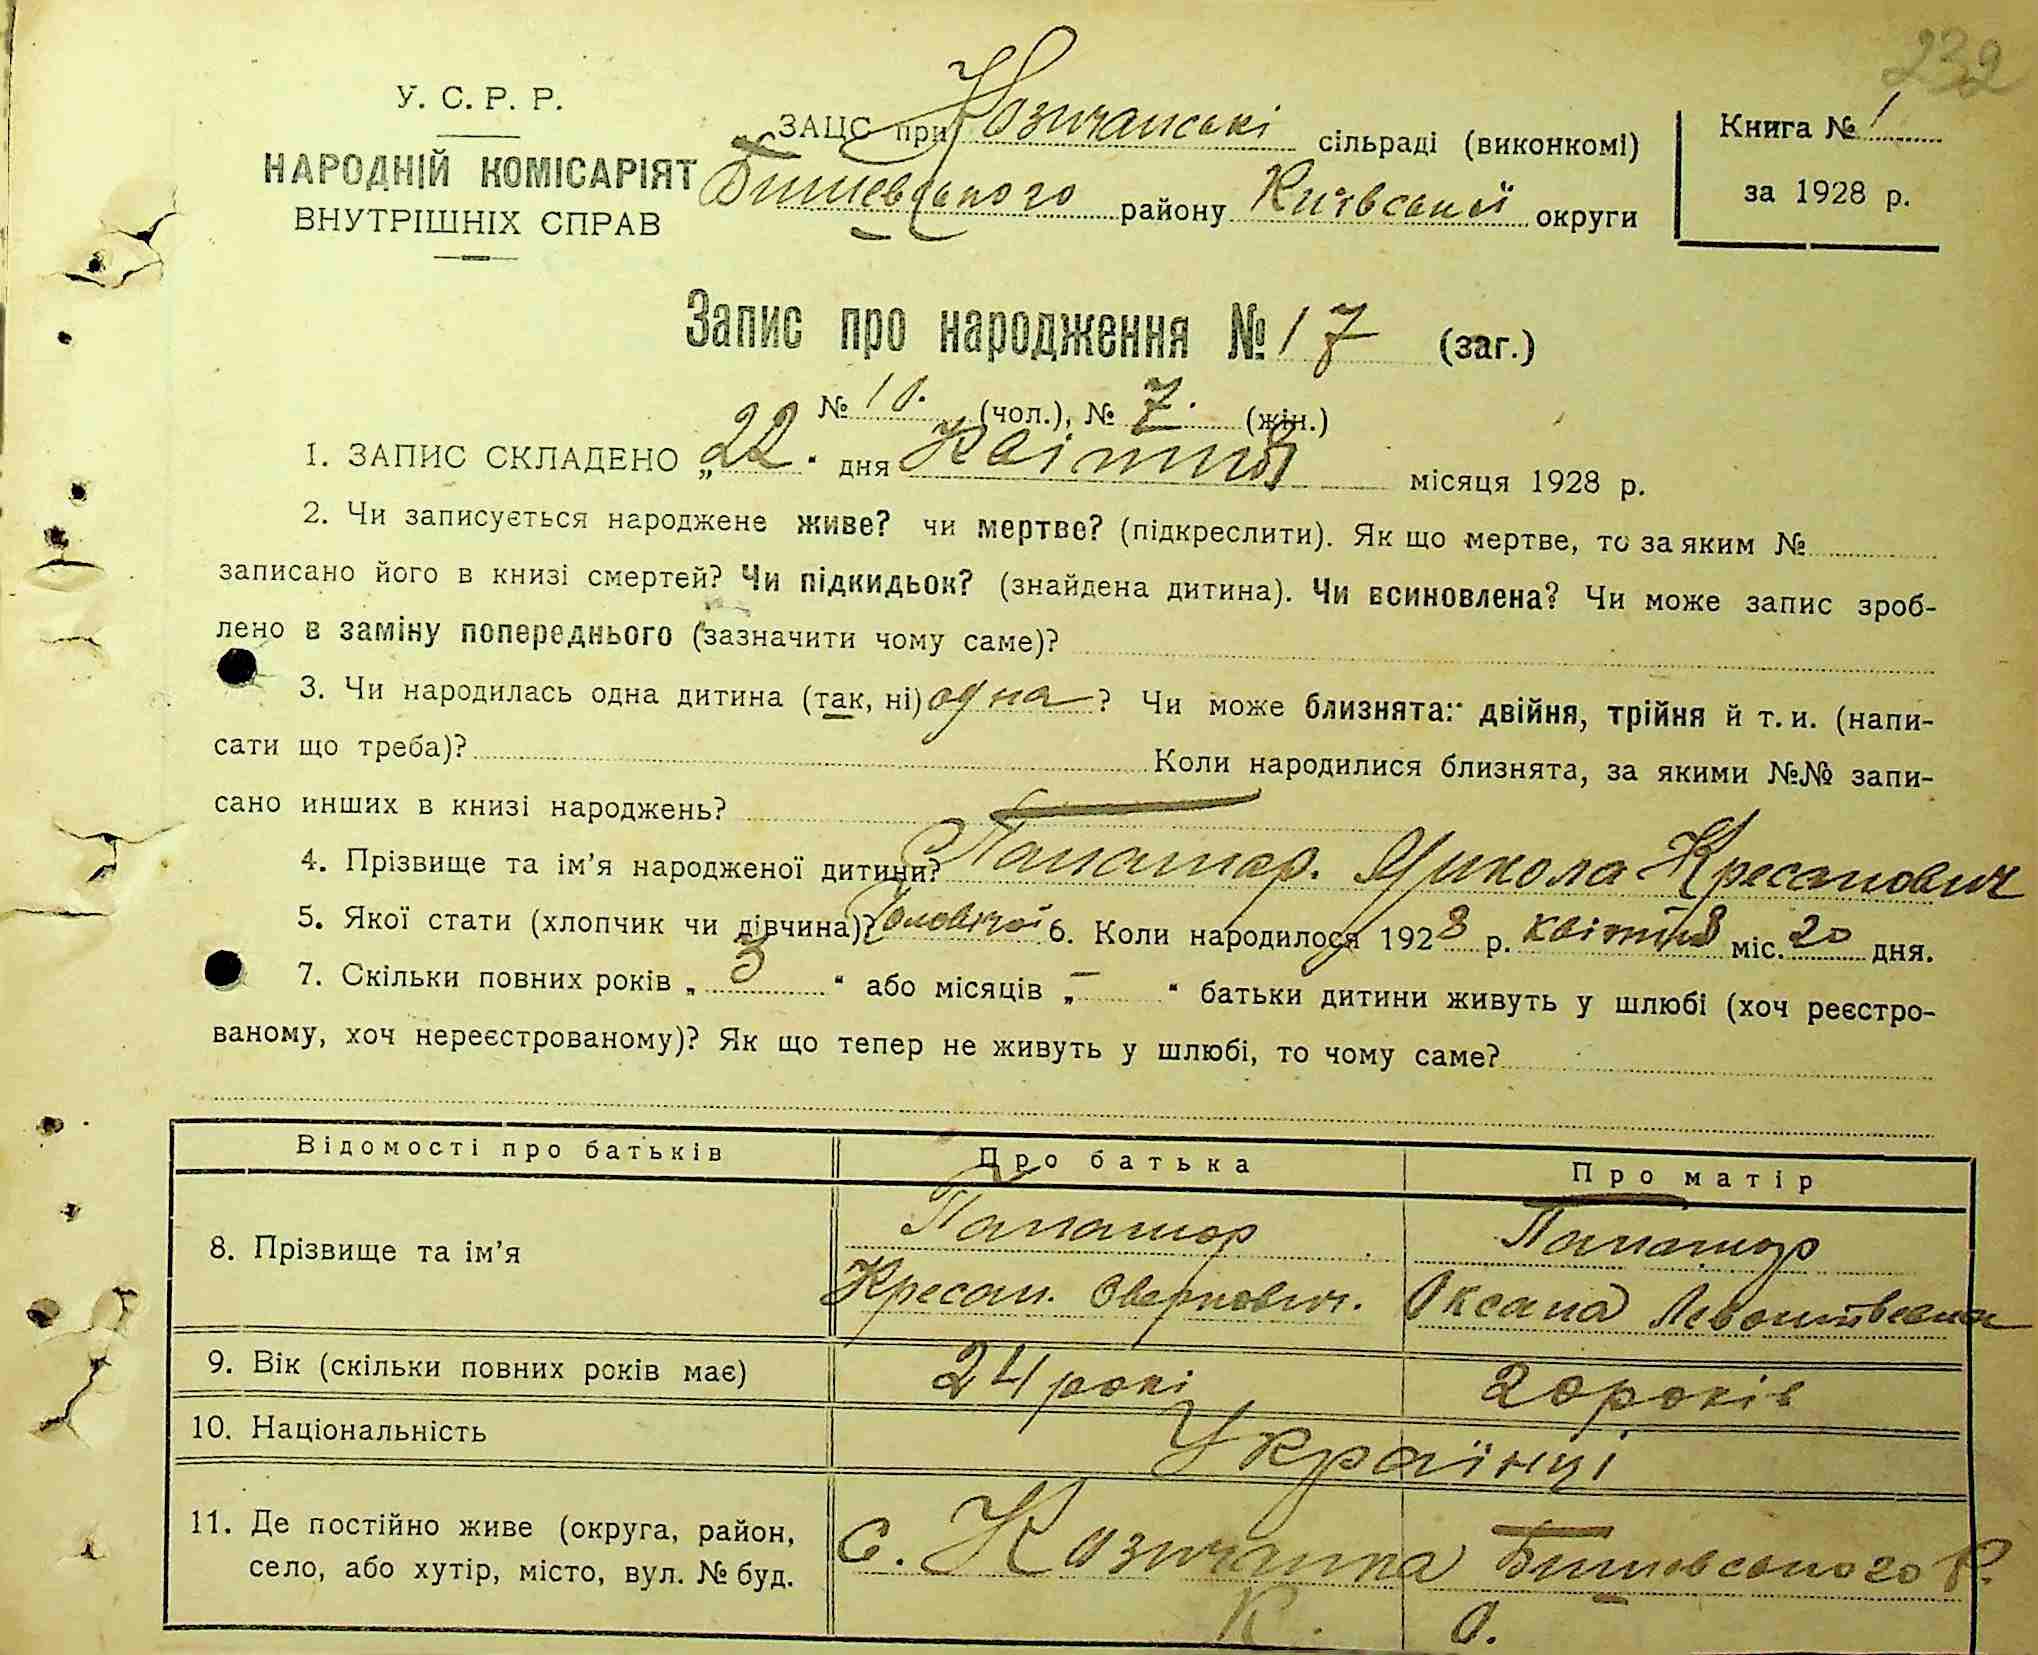 232
У. С. Р. Р.
НАРОДНІЙ КОМІСАРІЯТ
ВНУТРІШНІХ СПРАВ
ЗАЦС при Козичанські сільраді (виконкомі)
Бишевського району Київської округи
Книга № 1
за 1928 р.
Запис про народження № 17 (заг.)
№ 10. (чол.), № 7. (жін.)
1. ЗАПИС СКЛАДЕНО „22." дня Квітня місяця 1928 р.
2. Чи записується народжене живе? чи мертве? (підкреслити). Як що мертве, то за яким №
записано його в книзі смертей? Чи підкидьок? (знайдена дитина). Чи всиновлена? Чи може запис зроб-
лено в заміну попереднього (зазначити чому саме)?
3. Чи народилась одна дитина (так, ні) одна? Чи може близнята: двійня, трійня й т. и. (напи-
сати що треба)? Коли народилися близнята, за якими №№ запи-
сано инших в книзі народжень?
4. Прізвище та ім'я народженої дитини? Микола
5. Якої стати (хлопчик чи дівчина)? Чоловічої 6. Коли народилося 1928 р. квітня міс. 20 дня.
7. Скільки повних років „ 3 " або місяців „ – " батьки дитини живуть у шлюбі (хоч реєстро-
ваному, хоч нереєстрованому)? Як що тепер не живуть у шлюбі, то чому саме?
Відомості про батьків Про батька Про матір
8. Прізвище та ім'я
Оксана
9. Вік (скільки повних років має) 24 рокі 20 років
10. Національність Українці
11. Де постійно живе (округа, район, село, або хутір, місто, вул. № буд. с. Козичанка Бишевського р.
К. О.